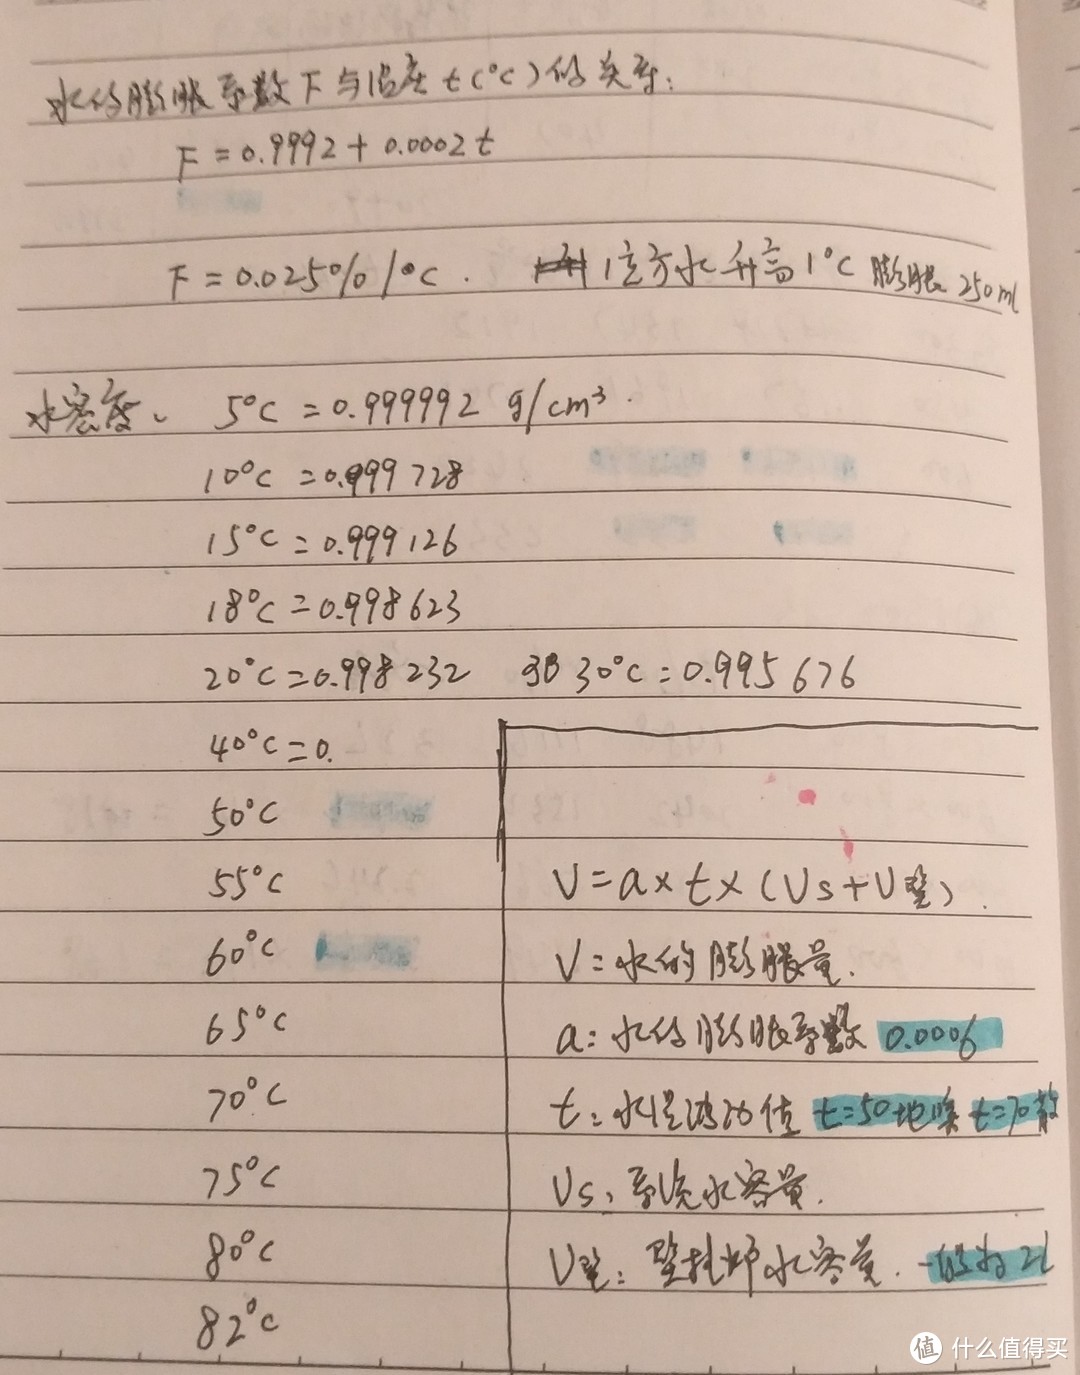 水的膨胀系数F与温度t(°C)的关系:
F=0.9992+0.0002t
F=0.025%/°C. 1立方水升高1°C膨胀250ml
水密度、 5°C=0.999992 g/cm³.
10°C=0.999728
15°C=0.999126
18°C=0.998623
20°C=0.998232 30°C=0.995676
40°C=0.
50°C
55°C
60°C
65°C
70°C
75°C
80°C
82°C
V=a×t×(Vs+V壁).
V=水的膨胀量.
a:水的膨胀系数 0.0006
t:水温波动值 t=50地暖 t=70散
Vs:系统水容量.
V壁:壁挂炉水容量.一般为2L
值 什么值得买